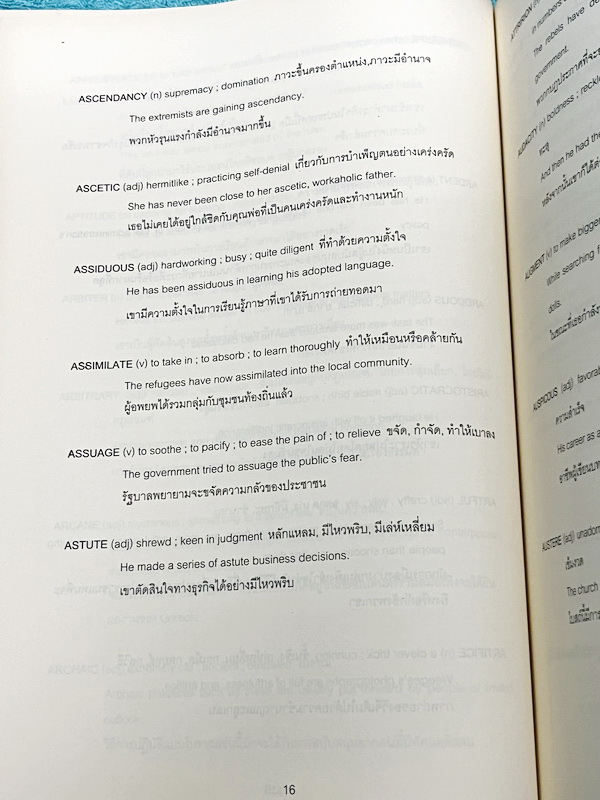 ASCENDANCY (n) supremacy ; domination ภาวะขึ้นครองตำแหน่ง,ภาวะมีอำนาจ
The extremists are gaining ascendancy.
พวกหัวรุนแรงกำลังมีอำนาจมากขึ้น
ASCETIC (adj) hermitlike ; practicing self-denial เกี่ยวกับการบำเพ็ญตนอย่างเคร่งครัด
She has never been close to her ascetic, workaholic father.
เธอไม่เคยได้อยู่ใกล้ชิดกับคุณพ่อที่เป็นคนเคร่งครัดและทำงานหนัก
ASSIDUOUS (adj) hardworking ; busy ; quite diligent ที่ทำด้วยความตั้งใจ
He has been assiduous in learning his adopted language.
เขามีความตั้งใจในการเรียนรู้ภาษาที่เขาได้รับการถ่ายทอดมา
ASSIMILATE (v) to take in ; to absorb ; to learn thoroughly ทำให้เหมือนหรือคล้ายกัน
The refugees have now assimilated into the local community.
ผู้อพยพได้รวมกลุ่มกับชุมชนท้องถิ่นแล้ว
ASSUAGE (v) to soothe ; to pacify ; to ease the pain of ; to relieve ขจัด, กำจัด, ทำให้เบาลง
The government tried to assuage the public's fear.
รัฐบาลพยายามจะขจัดความกลัวของประชาชน
ASTUTE (adj) shrewd ; keen in judgment หลักแหลม, มีไหวพริบ, มีเล่ห์เหลี่ยม
He made a series of astute business decisions.
เขาตัดสินใจทางธุรกิจได้อย่างมีไหวพริบ
16
ATTRITION (n)
in numbers
The rebels have
government.
AUDACITY (n) boldness ;
ทะลุ
And then he had the
AUGMENT (v) to make bigger
While searching
dolls.
AUSPICIOUS (adj)
ความสำเร็จ
His career as a
AUSTERE (adj)
เข้มงวด
The church